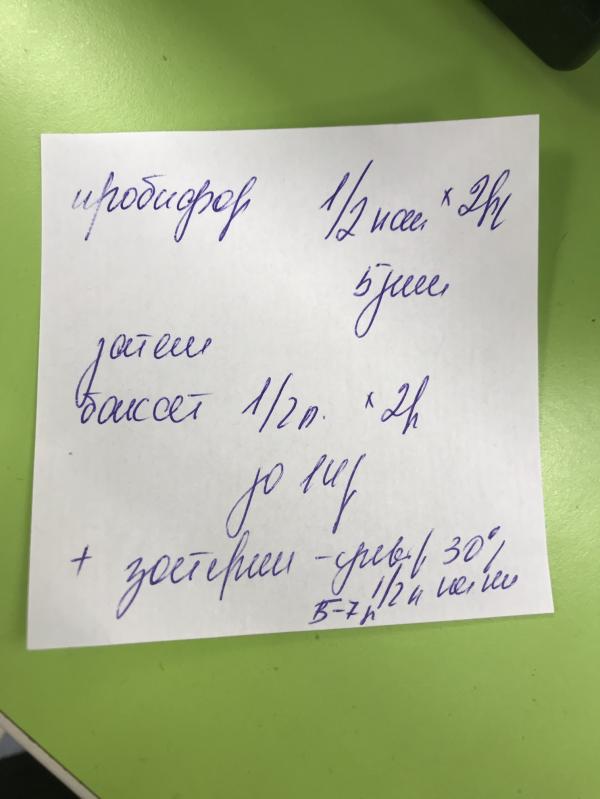 пробифор 1/2 пак × 2р
5 дни
затем
баксет 1/2 п. × 2р
до 14 д
+ зостерин - ультра 30%
1/2 п
5-7 д